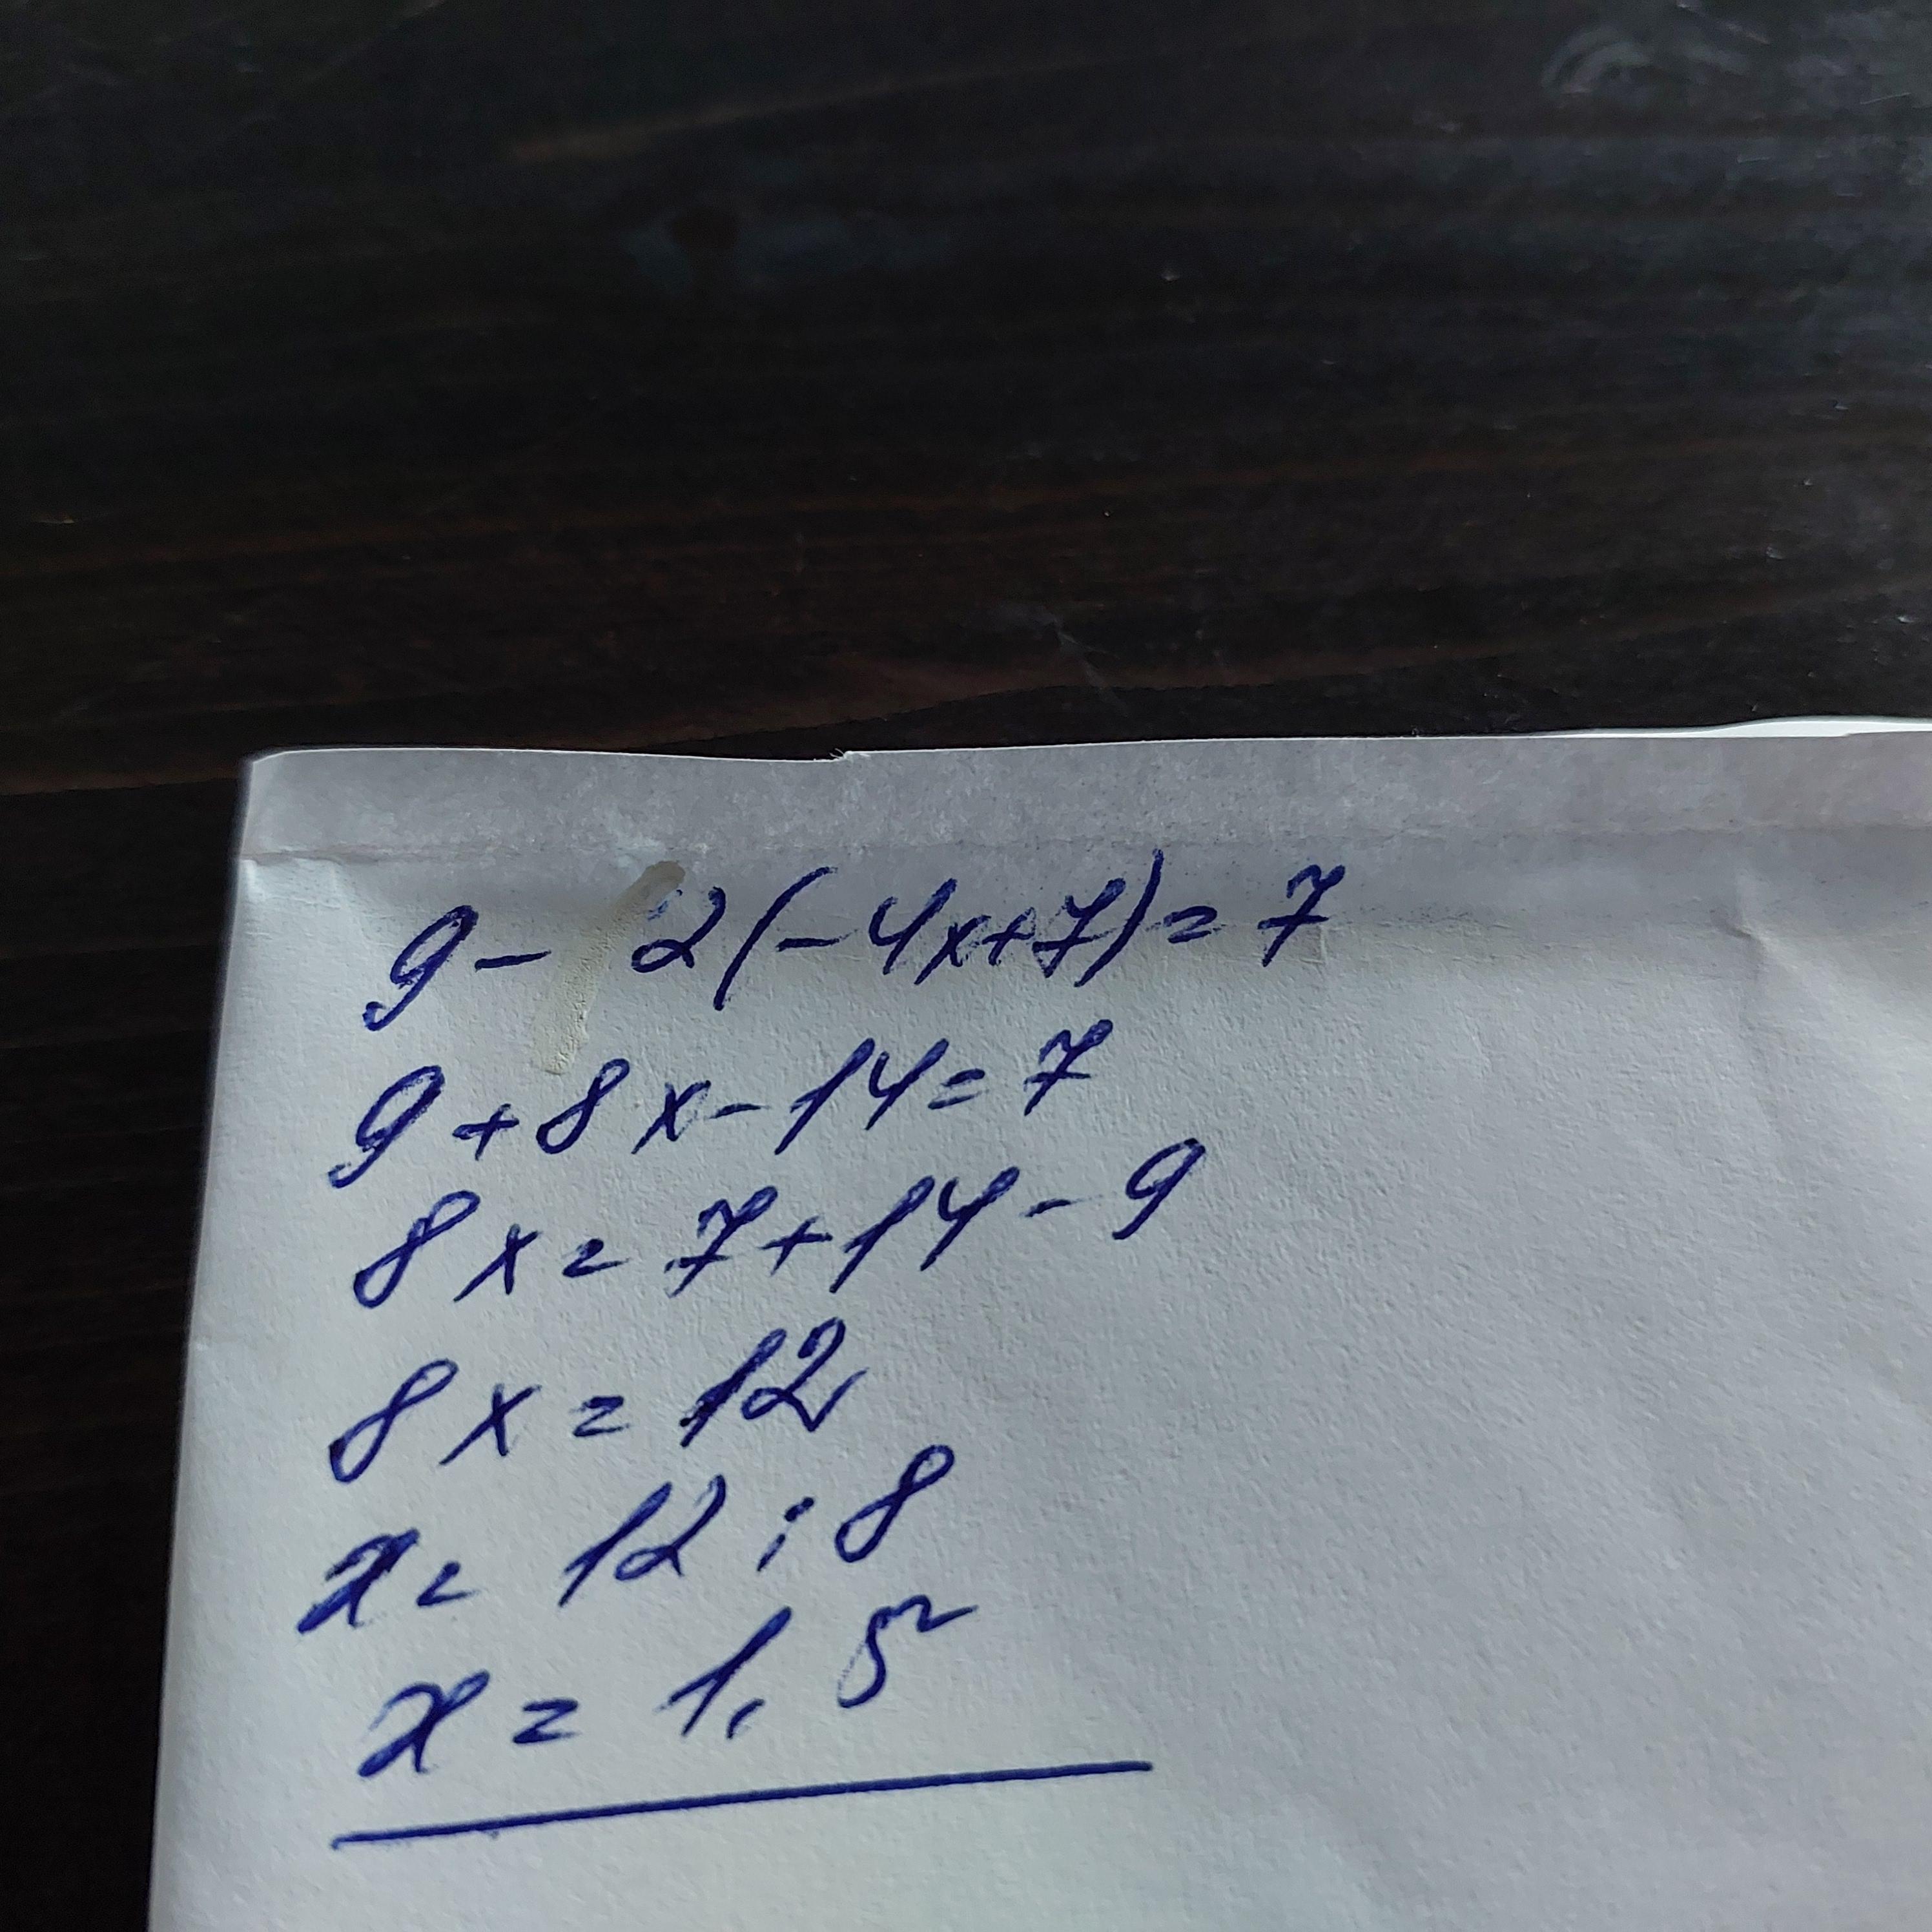 9 - 2(-4x+7)=7
9+8x-14=7
8x=7+14-9
8x=12
x=12:8
x=1,5